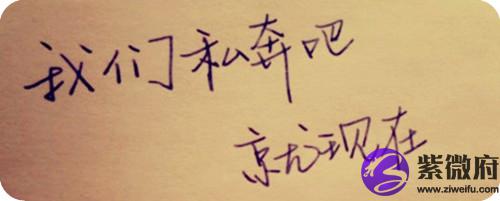 我们私奔吧
就现在
紫微府
www.ziweifu.com